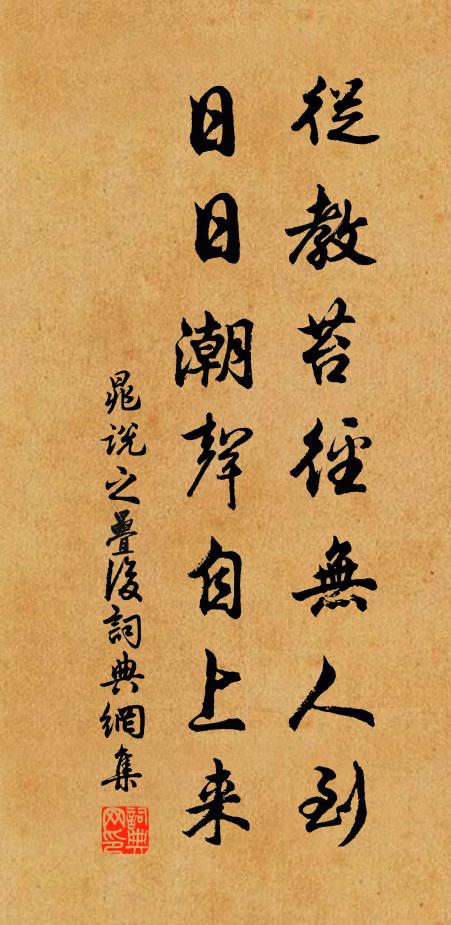 從教苔徑無人到
日日潮聲自上来
晁说之疊後詞典網集
詞典网印